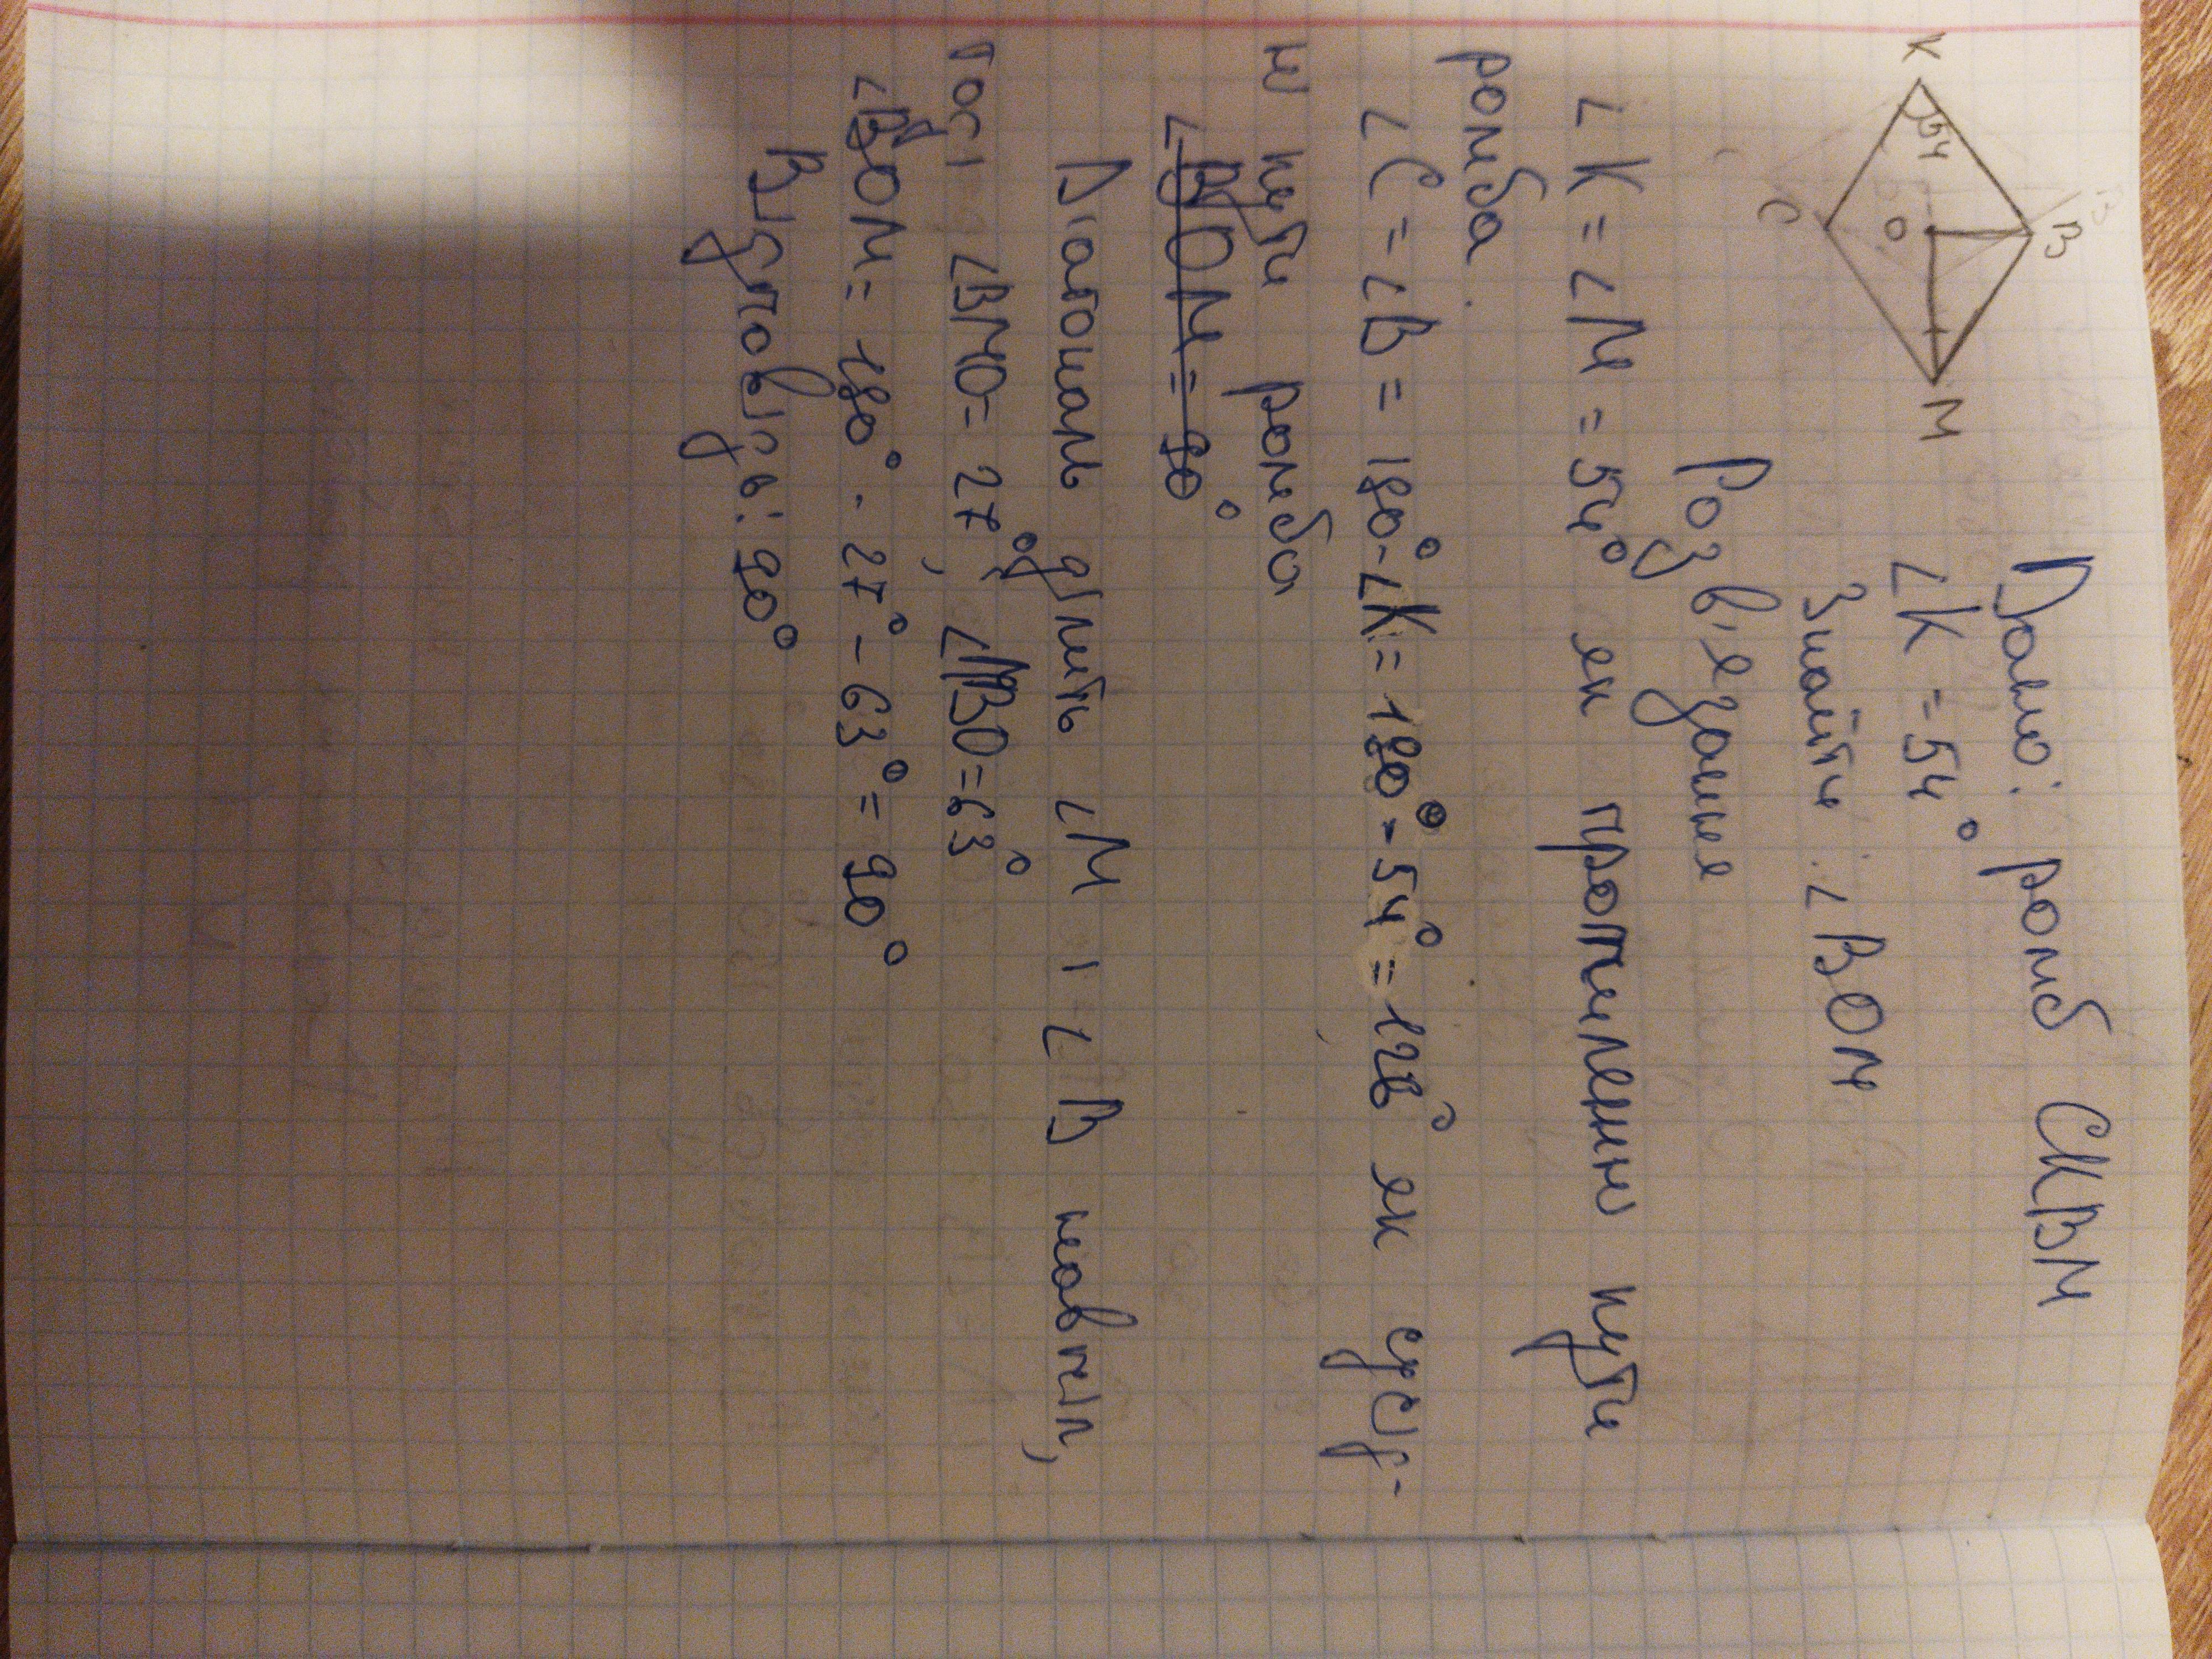 K
54
B
O
M
C
Дано: ромб CKBM
∠K = 54°
Знайти: ∠BOM
Розв'язання
∠K = ∠M = 54° як протилежні кути
ромба.
∠C = ∠B = 180° - ∠K = 180° - 54° = 126° як сусід-
ні кути ромба
∠BOM = 90°
Діагональ ділить ∠M і ∠B навпіл,
тоді ∠BMO = 27°, ∠MBO = 63°
∠BOM = 180° - 27° - 63° = 90°
Відповідь: 90°